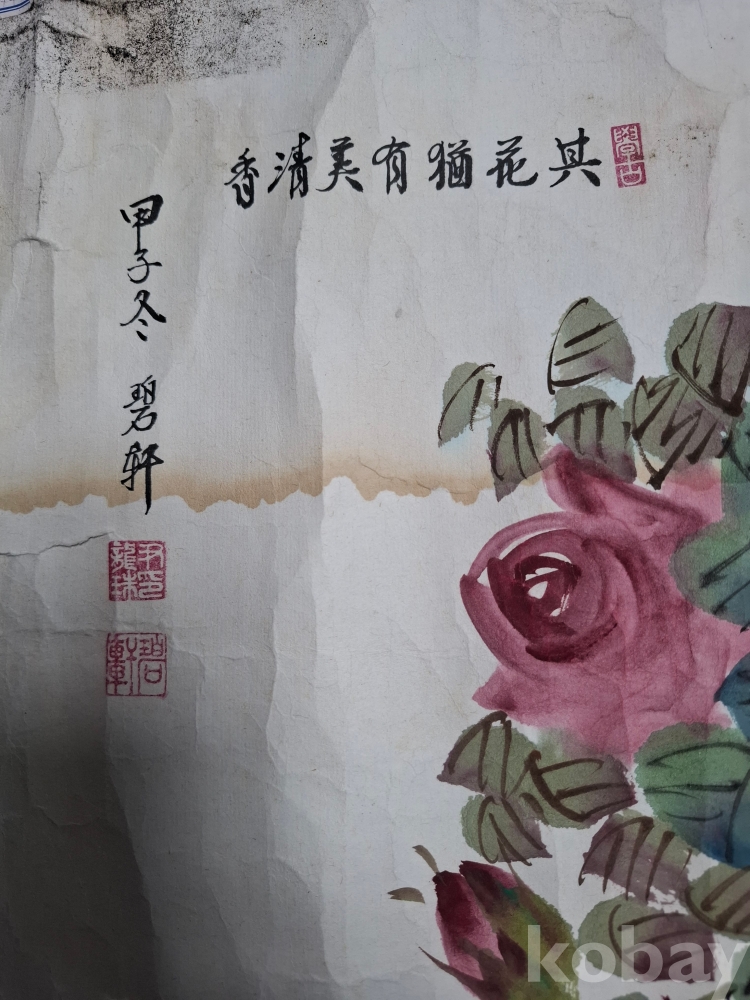 其花猶有美清香
學古
甲子冬 碧軒
碧軒
kobay